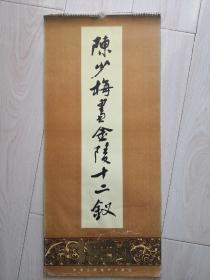 陳少梅畫金陵十二釵